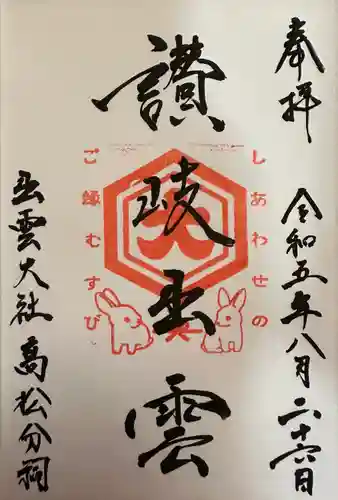 奉拝
令和五年八月二十六日
讃岐出雲
しあわせの
ご縁むすび
大
出雲大社高松分祠